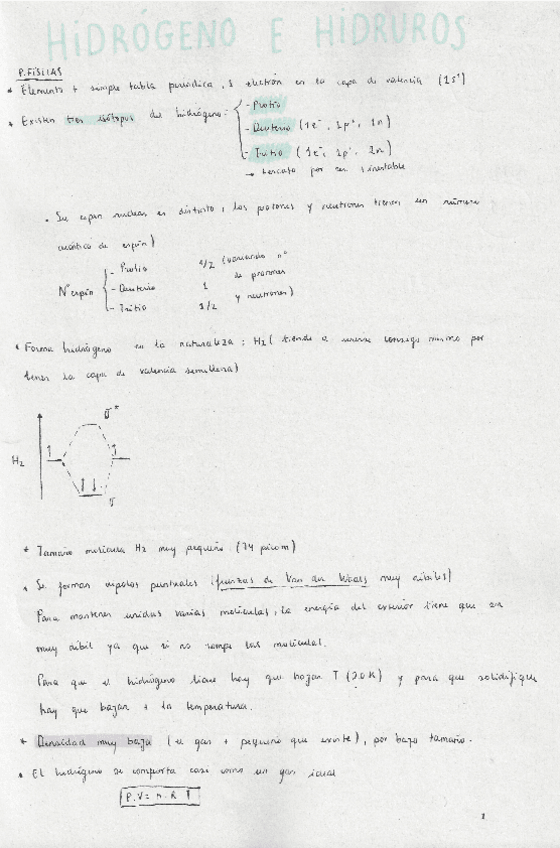 HIDROGENO E HIDRUROS
P. FÍSICAS
* Elemento + simple tabla periódica, 1 electrón en la capa de valencia (1s¹)
* Existen tres isótopos del hidrógeno:
- Protio
- Deuterio (1e⁻, 1p⁺, 1n)
- Tritio (1e⁻, 1p⁺, 2n)
→ escaso por ser inestable
• Su espín nuclear es distinto, los protones y neutrones tienen un número
cuántico de espín)
Nº espín
- Protio 1/2 (sumando nº
- Deuterio 1 de protones
- Tritio 1/2 y neutrones)
* Forma hidrógeno en la naturaleza: H₂ (tiende a unirse consigo mismo por
tener la capa de valencia semillena)
σ*
H₂
σ
* Tamaño molécula H₂ muy pequeño (74 picom)
* Se forman dipolos puntuales (fuerzas de Van der Waals muy débiles)
Para mantener unidas varias moléculas, la energía del exterior tiene que ser
muy débil ya que si no rompe las moléculas.
Para que el hidrógeno licue hay que bajar T (20K) y para que solidifique
hay que bajar + la temperatura.
* Densidad muy baja (el gas + pequeño que existe), por bajo tamaño.
* El hidrógeno se comporta casi como un gas ideal
P.V = n.R T
1